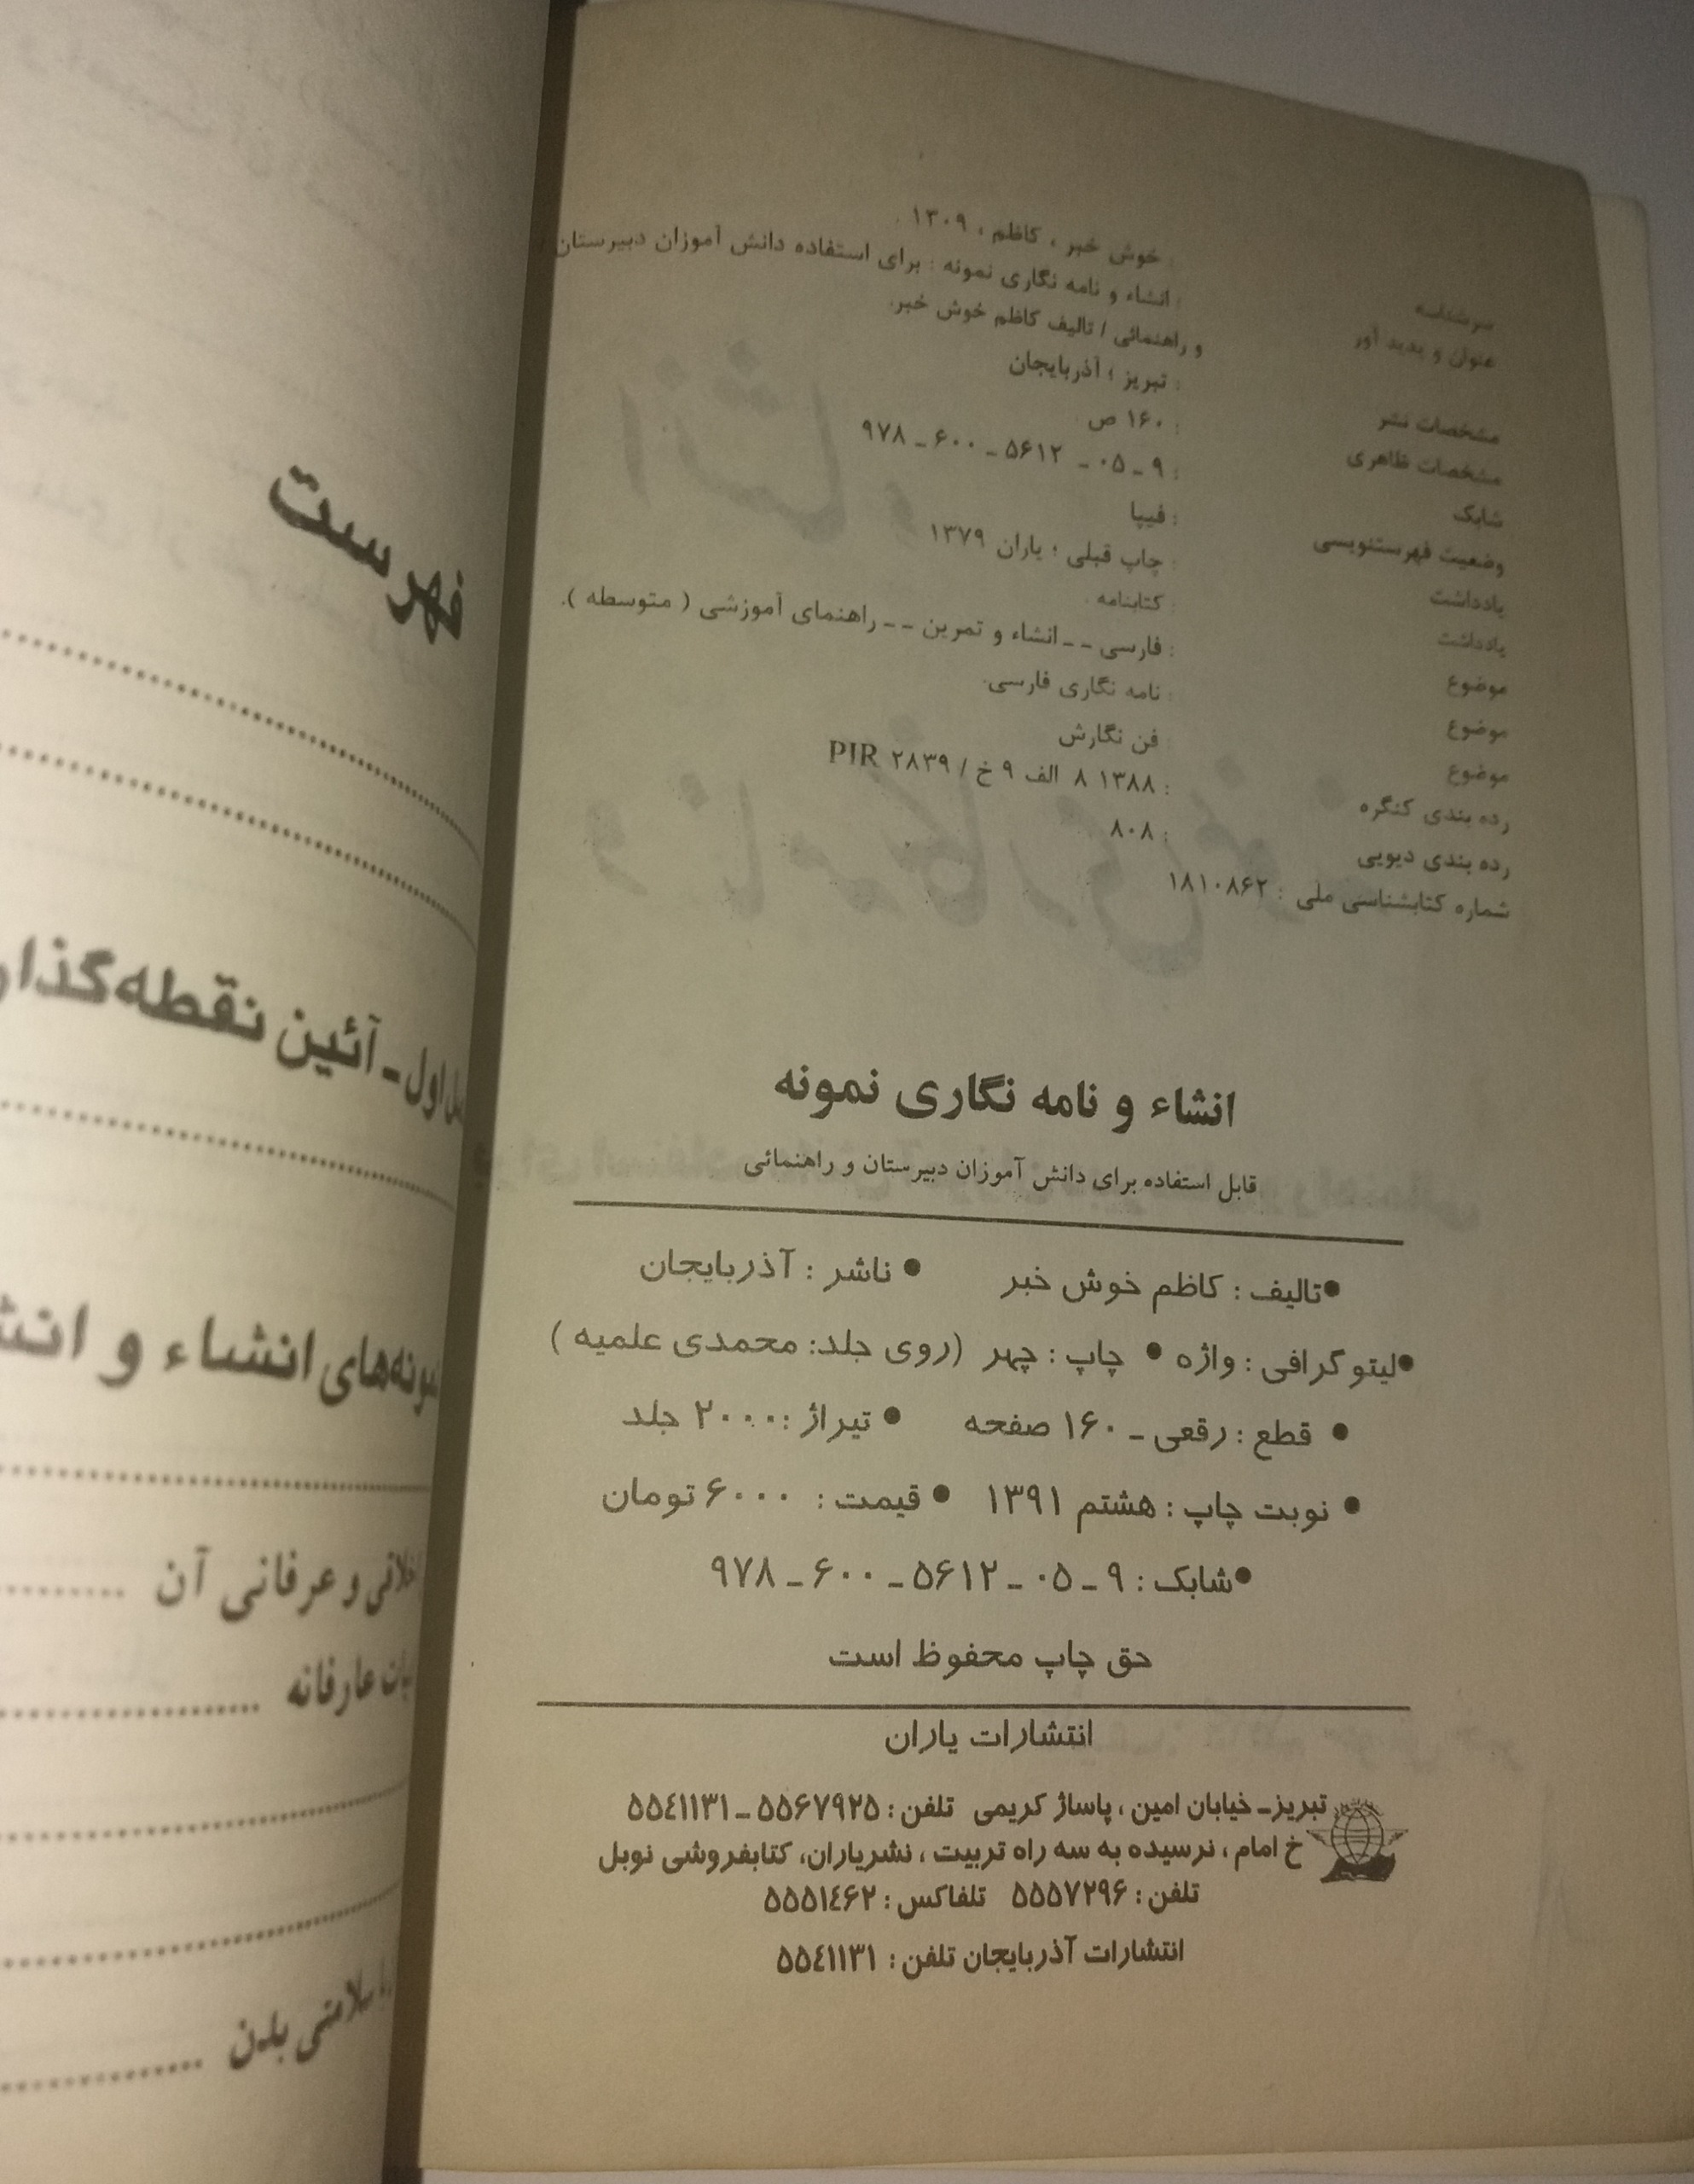 سرشناسه : خوش خبر ، کاظم ، ۱۳۰۹ .
عنوان و پدید آور : انشاء و نامه نگاری نمونه : برای استفاده دانش آموزان دبیرستان
و راهنمائی / تالیف کاظم خوش خبر.
مشخصات نشر : تبریز ؛ آذربایجان
مشخصات ظاهری : ۱۶۰ ص
شابک : ۹ ـ ۰۵ ـ ۵۶۱۲ ـ ۶۰۰ ـ ۹۷۸
وضعیت فهرستنویسی : فیپا
یادداشت : چاپ قبلی ؛ یاران ۱۳۷۹
یادداشت : کتابنامه
موضوع : فارسی ـ ـ انشاء و تمرین ـ ـ راهنمای آموزشی ( متوسطه ).
موضوع : نامه نگاری فارسی.
موضوع : فن نگارش
رده بندی کنگره : ۱۳۸۸ ۸ الف ۹ خ / ۲۸۳۹ PIR
رده بندی دیویی : ۸۰۸
شماره کتابشناسی ملی : ۱۸۱۰۸۶۲
انشاء و نامه نگاری نمونه
قابل استفاده برای دانش آموزان دبیرستان و راهنمائی
●تالیف : کاظم خوش خبر ● ناشر : آذربایجان
●لیتو گرافی : واژه ● چاپ : چهر (روی جلد: محمدی علمیه )
● قطع : رقعی ـ ۱۶۰ صفحه ● تیراژ : ۲۰۰۰ جلد
● نوبت چاپ : هشتم ۱۳۹۱ ● قیمت : ۶۰۰۰ تومان
●شابک : ۹ ـ ۰۵ ـ ۵۶۱۲ ـ ۶۰۰ ـ ۹۷۸
حق چاپ محفوظ است
انتشارات یاران
تبریز ـ خیابان امین ، پاساژ کریمی تلفن : ۵۵۶۷۹۲۵ ـ ۵۵۴۱۱۳۱
خ امام ، نرسیده به سه راه تربیت ، نشریاران، کتابفروشی نوبل
تلفن : ۵۵۵۷۲۹۶ تلفاکس : ۵۵۵۱٤۶۲
انتشارات آذربایجان تلفن : ۵۵٤۱۱۳۱
فهرست
اول ـ آئین
انشاء و
و عرفانی آن
عارفانه
سلامتی بدن